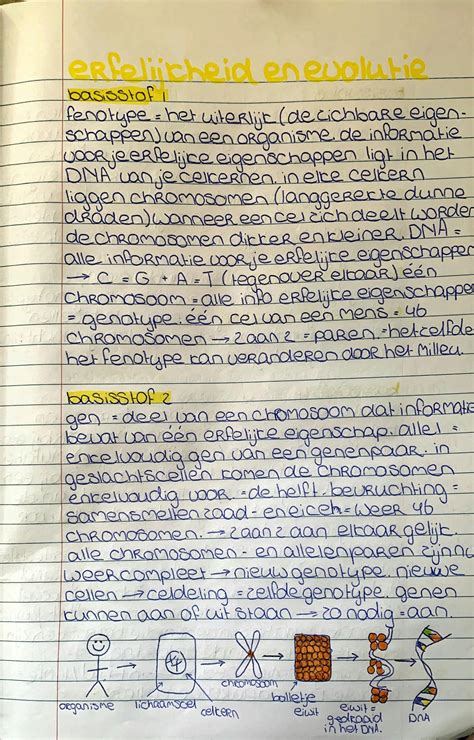 erfelijkheid en evolutie
basisstof 1
fenotype = het uiterlijk (de zichbare eigen-
schappen) van een organisme. de informatie
voor je erfelijke eigenschappen ligt in het
DNA van je celkernen. in elke celkern
liggen chromosomen (langgerekte dunne
draden) wanneer een cel zich deelt worden
de chromosomen dikker en kleiner. DNA =
alle informatie voor je erfelijke eigenschappen
→ C = G + A = T (tegenover elkaar) één
chromosoom = alle info erfelijke eigenschappen
= genotype. één cel van een mens = 46
chromosomen → 2 aan 2 = paren. = hetzelfde
het fenotype kan veranderen door het Milieu.
basisstof 2
gen = deel van een chromosoom dat informatie
bevat van één erfelijke eigenschap. allel =
enkelvoudig gen van een genenpaar. in
geslachtscellen komen de chromosomen
enkelvoudig voor. = de helft. bevruchting =
samensmelten zaad- en eicel = weer 46
chromosomen. → 2 aan 2 aan elkaar gelijk.
alle chromosomen - en allelenparen zijn nu
weer compleet → nieuw genotype. nieuwe
cellen → celdeling = zelfde genotype. genen
kunnen aan of uit staan → zo nodig = aan.
organisme lichaamscel celkern chromosoom bolletje eiwit eiwit = gedraaid in het DNA. DNA